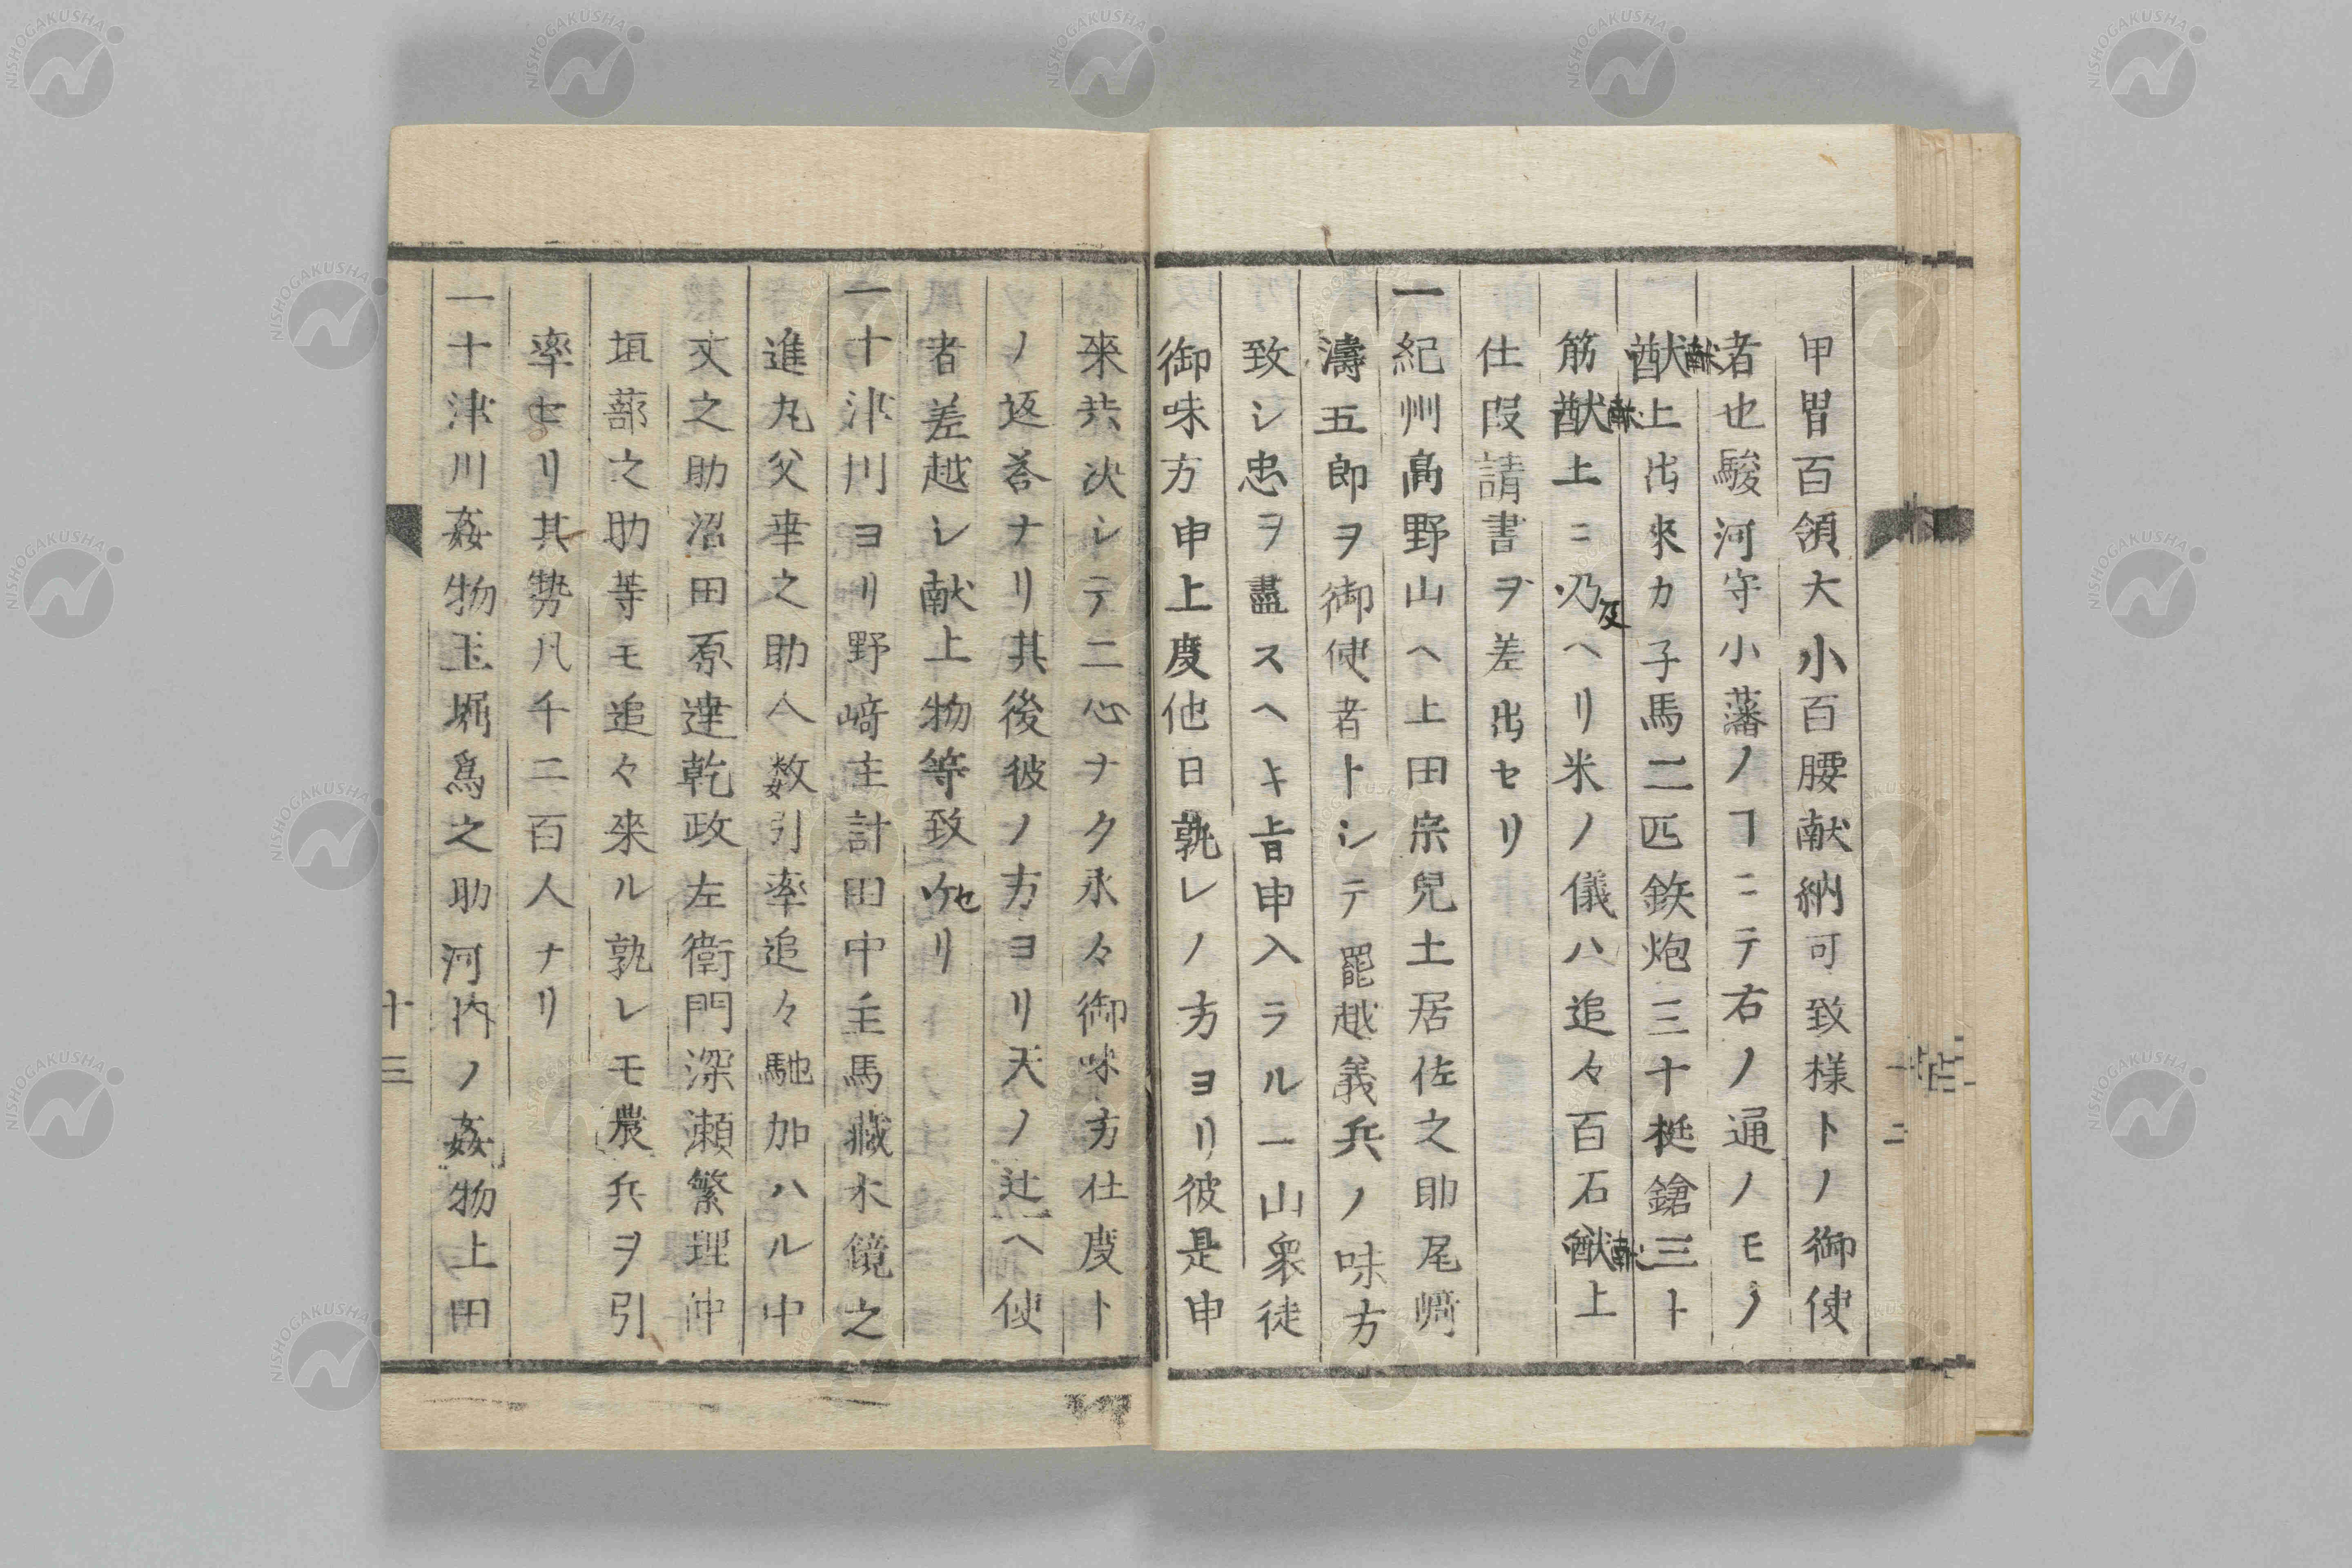 甲冑百領大小百腰献納可致様トノ御使
者也駿河守小藩ノヿニテ右ノ通ノモノ
猷献上出來カ子馬二匹鉄炮三十挺鎗三ト
筋猷献上ニ乃及ヘリ米ノ儀ハ追々百石猷献上
仕叚請書ヲ差出セリ
一紀州髙野山ヘ上田宗兒土居佐之助尾﨑
濤五郎ヲ御使者トシテ罷越義兵ノ味方
致シ忠ヲ盡スヘキ旨申入ラル一山衆徒
御味方申上度他日孰レノ方ヨリ彼是申
來共决シテ二心ナク永々御味方仕度ト
ノ返答ナリ其後彼ノ方ヨリ天ノ辻ヘ使
者差越シ献上物等致セリ
一十津川ヨリ野﨑主計田中主馬藏木鏡之
進丸父聿之助人数引率追々馳加ハル中
文之助沼田原達乾政左衛門深瀬繁理仲
垣蔀之助等モ追々來ル孰レモ農兵ヲ引
率セリ其勢凡千二百人ナリ
一十津川姦物玉堀爲之助河内ノ姦物上田
十三